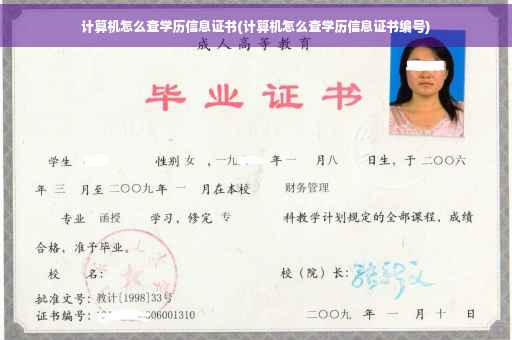 计算机怎么查学历信息证书(计算机怎么查学历信息证书编号)
成人高等教育
毕业证书
学生 性别 女 ,一九 年 一 月 八 日生，于 二〇〇六
年 三 月至 二〇〇九 年 一 月在本校 财务管理
专业 函授 学习，修完 专 科教学计划规定的全部课程，成绩
合格，准予毕业。
校 名： 校（院）长：
批准文号：教计[1998]33号
证书编号： 06001310 二〇〇九 年 一 月 十 日